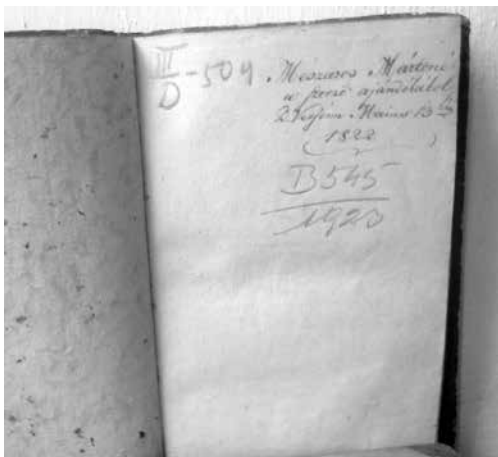 III
D - 504
Mészáros Mártoné
ajándékából
Maius 13
(1822)
B545
1923